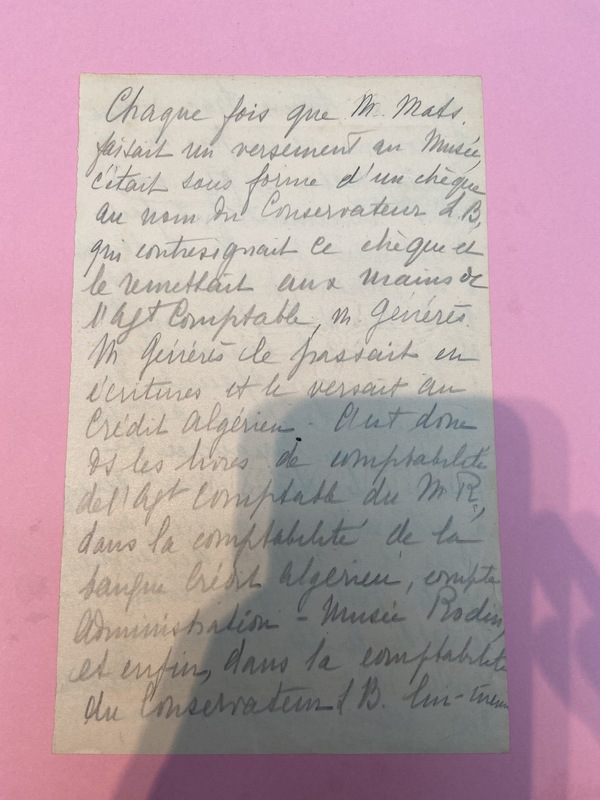 Chaque fois que M. Mats.
faisait un versement au Musée,
c'était sous forme d'un chèque
au nom du Conservateur L.B,
qui contresignait ce chèque et
le remettait aux mains de
l'Agt Comptable, M. Générès.
M Générès le passait en
écritures et le versait au
Crédit Algérien. C'est donc
ds les livres de comptabilité
de l'Agt Comptable du M R,
dans la comptabilité de la
banque Crédit Algérien, compte
Administration - Musée Rodin,
et enfin, dans la comptabilité
du Conservateur L B. lui-même